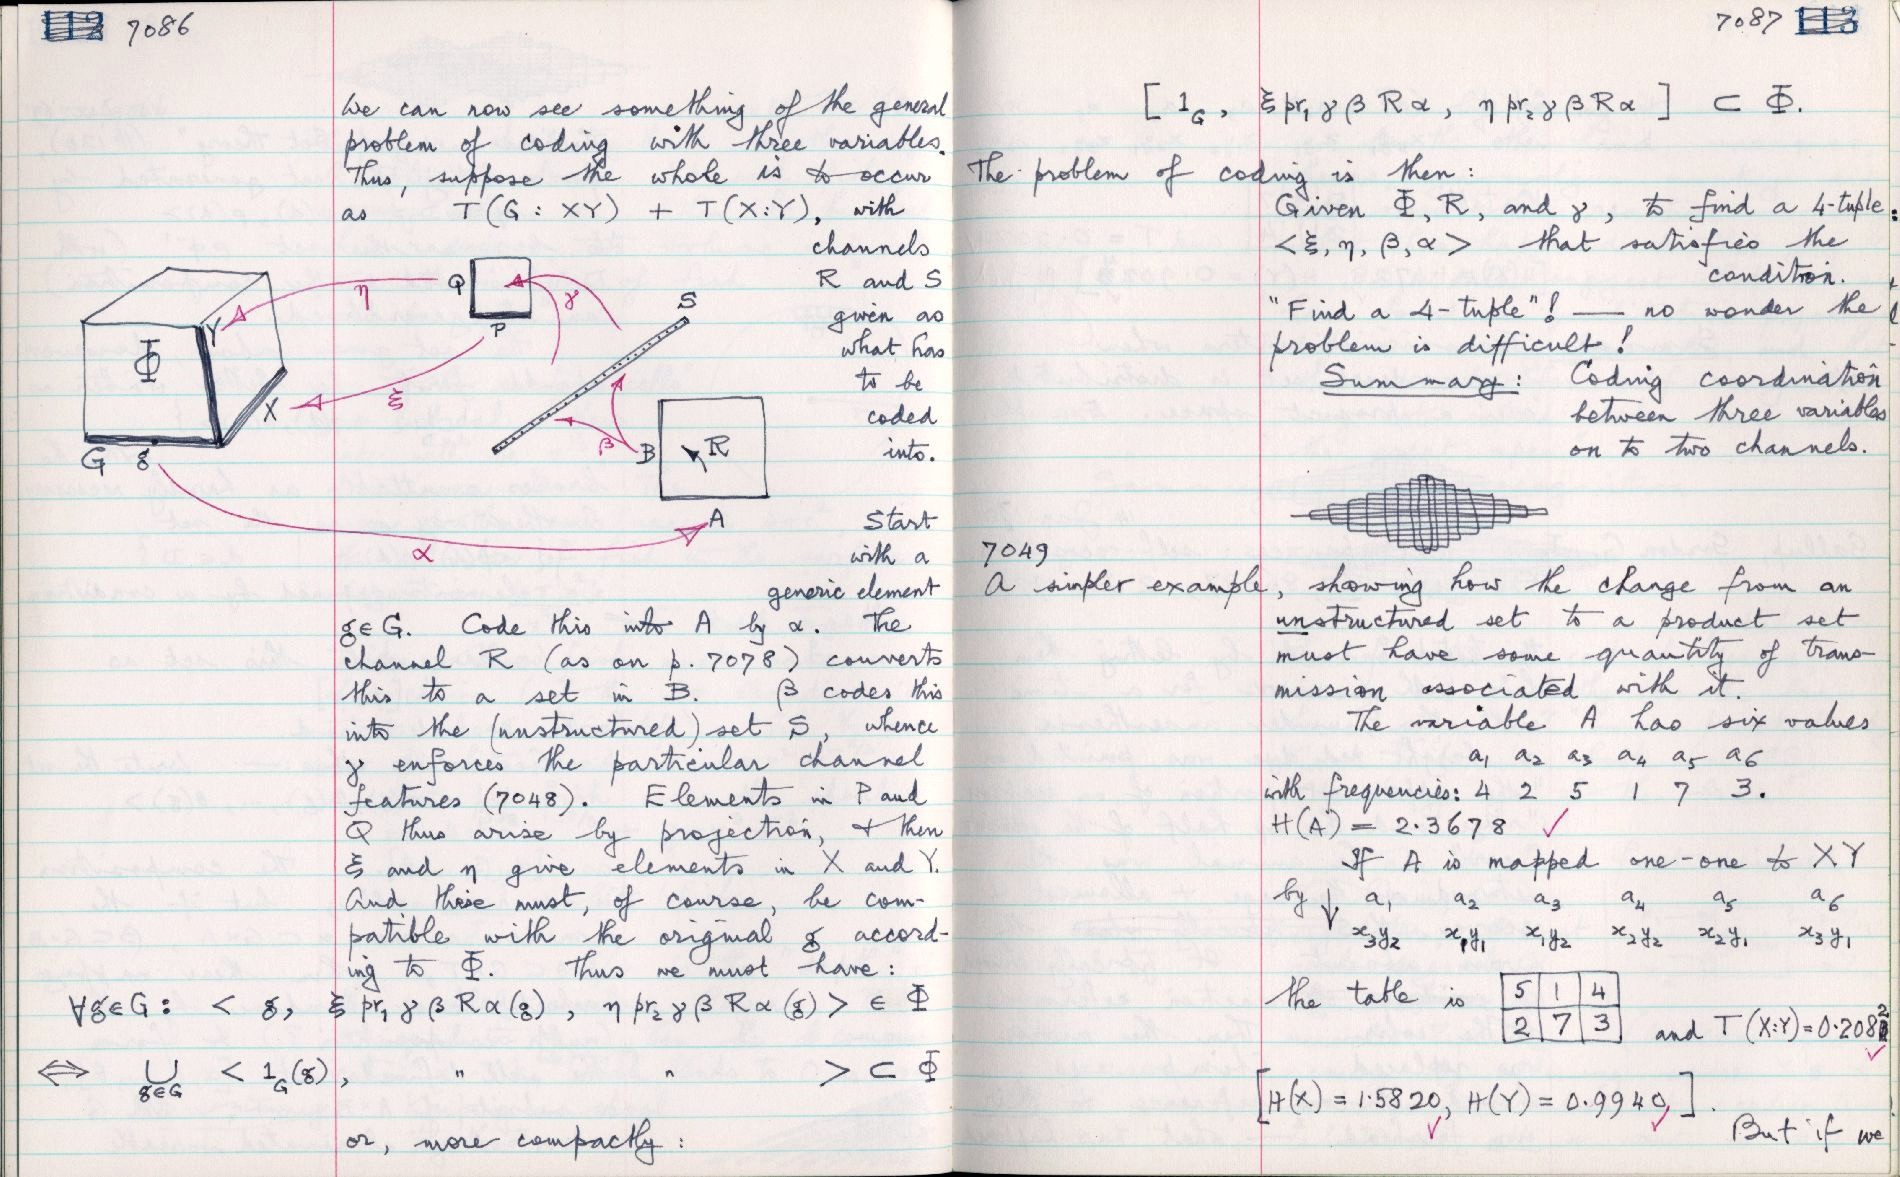 112 7086
We can now see something of the general
problem of coding with three variables.
Thus, suppose the whole is to occur
as T(G : XY) + T(X:Y), with
channels
R and S
given as
what has
to be
coded
into.
Φ
Y
X
G g
η
ξ
Q
P
γ
S
β
B
R
A
α
Start
with a
generic element
g∈G. Code this into A by α. The
channel R (as on p. 7078) converts
this to a set in B. β codes this
into the (unstructured) set S, whence
γ enforces the particular channel
features (7048). Elements in P and
Q thus arise by projection, & then
ξ and η give elements in X and Y.
And these must, of course, be com-
patible with the original g accord-
ing to Φ. Thus we must have:
∀g∈G: < g, ξ pr₁ γ β R α (g), η pr₂ γ β R α (g) > ∈ Φ
⇔ ⋃ g∈G < 1_G(g), " " > ⊂ Φ
or, more compactly:
7087 113
[ 1_G, ξ pr₁ γ β R α, η pr₂ γ β R α ] ⊂ Φ.
The problem of coding is then:
Given Φ, R, and γ, to find a 4-tuple:
<ξ, η, β, α> that satisfies the
condition.
"Find a 4-tuple"! — no wonder the
problem is difficult!
Summary: Coding coordination
between three variables
on to two channels.
7049
A simpler example, showing how the change from an
unstructured set to a product set
must have some quantity of trans-
mission associated with it.
The variable A has six values
a₁ a₂ a₃ a₄ a₅ a₆
with frequencies: 4 2 5 1 7 3.
H(A) = 2.3678 ✓
If A is mapped one-one to XY
by ↓ a₁ a₂ a₃ a₄ a₅ a₆
x₃y₂ x₁y₁ x₁y₂ x₂y₂ x₂y₁ x₃y₁
the table is
5 1 4
2 7 3
and T(X:Y) = 0.2082 ✓
[H(X) = 1.5820, H(Y) = 0.9940].
✓ ✓
But if we